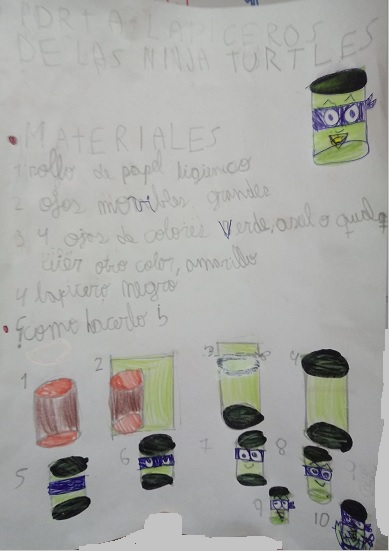 PORTA LAPICEROS
DE LAS NINJA TURTLES
MATERIALES
1 rollo de papel higienico
2 ojos movibles grandes
3 4 ojas de colores Verde, asul o qualq
cuier otro color, amarillo
4 lapicero negro
¿como hacerlo?
1
2
3
4
5
6
7
8
9
9
10